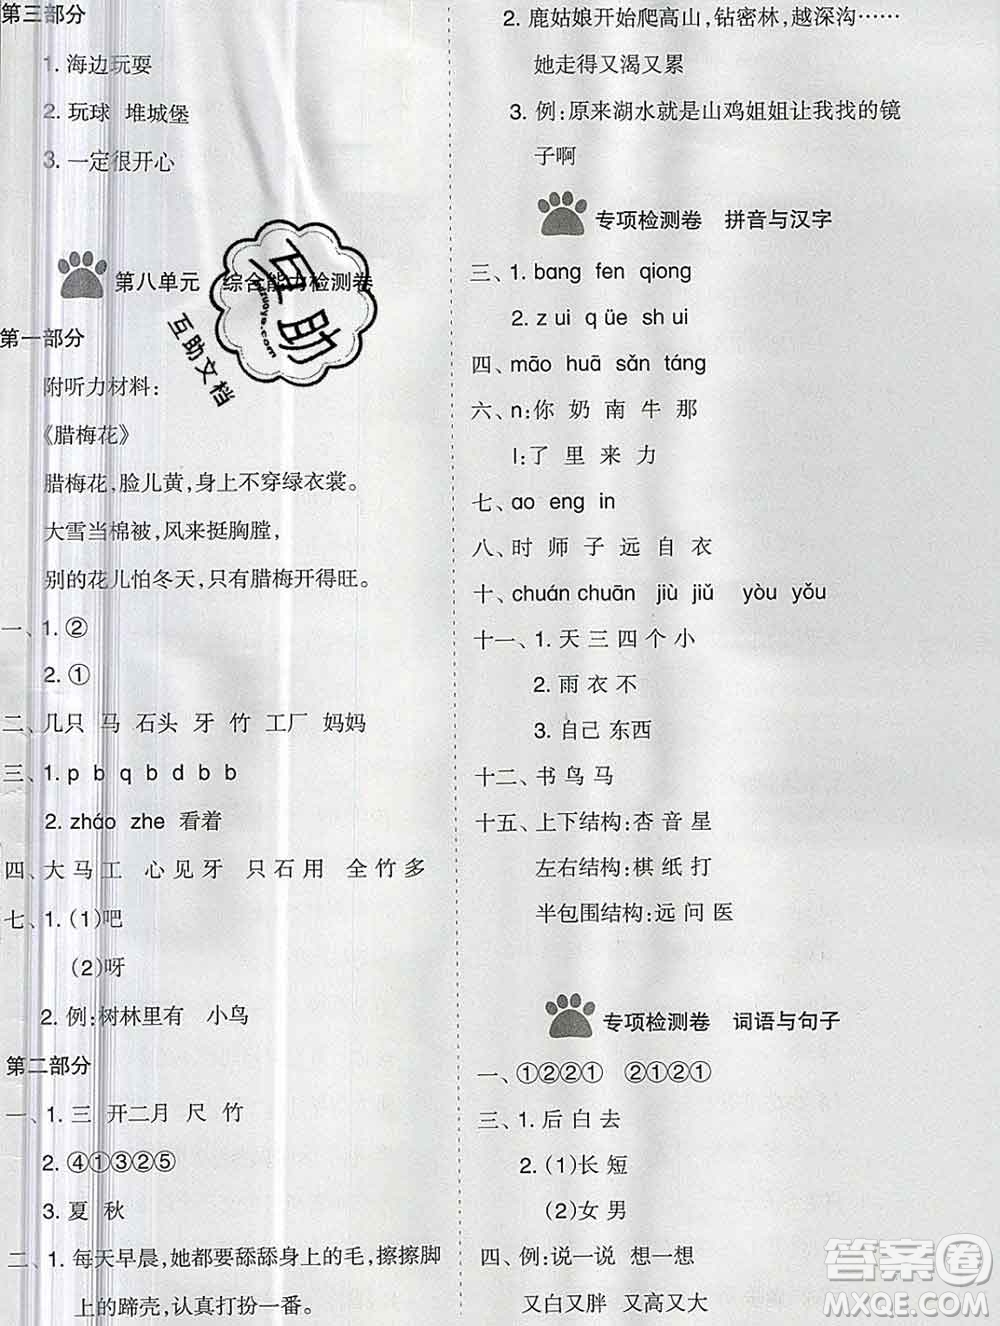 第三部分
1. 海边玩耍
2. 玩球 堆城堡
3. 一定很开心
第八单元 综合能力检测卷
第一部分
附听力材料:
《腊梅花》
腊梅花,脸儿黄,身上不穿绿衣裳。
大雪当棉被,风来挺胸膛,
别的花儿怕冬天,只有腊梅开得旺。
一、1. ②
2. ①
二、几只 马 石头 牙 竹 工厂 妈妈
三、1. p b q b d b b
2. zháo zhe 看着
四、大马工 心见牙 只石用 全竹多
七、1. (1)吧
(2)呀
2. 例:树林里有 小鸟
第二部分
一、1. 三 开二月 尺 竹
2. ④①③②⑤
3. 夏 秋
二、1. 每天早晨,她都要舔舔身上的毛,擦擦脚
上的蹄壳,认真打扮一番。
2. 鹿姑娘开始爬高山,钻密林,越深沟……
她走得又渴又累
3. 例:原来湖水就是山鸡姐姐让我找的镜
子啊
专项检测卷 拼音与汉字
三、1. bang fen qiong
2. z ui q üe sh ui
四、māo huā sǎn táng
六、n:你 奶 南 牛 那
l:了 里 来 力
七、ao eng in
八、时 师 子 远 自 衣
十、chuán chuān jiù jiǔ yòu yǒu
十一、1. 天 三 四 个 小
2. 雨 衣 不
3. 自己 东西
十二、书 鸟 马
十五、上下结构:杏 音 星
左右结构:棋 纸 打
半包围结构:远 问 医
专项检测卷 词语与句子
一、①②②① ②①②①
三、1. 后 白 去
2. (1)长 短
(2)女 男
四、例:说一说 想一想
又白又胖 又高又大
互助
互助文档
答案圈
MXQE.COM